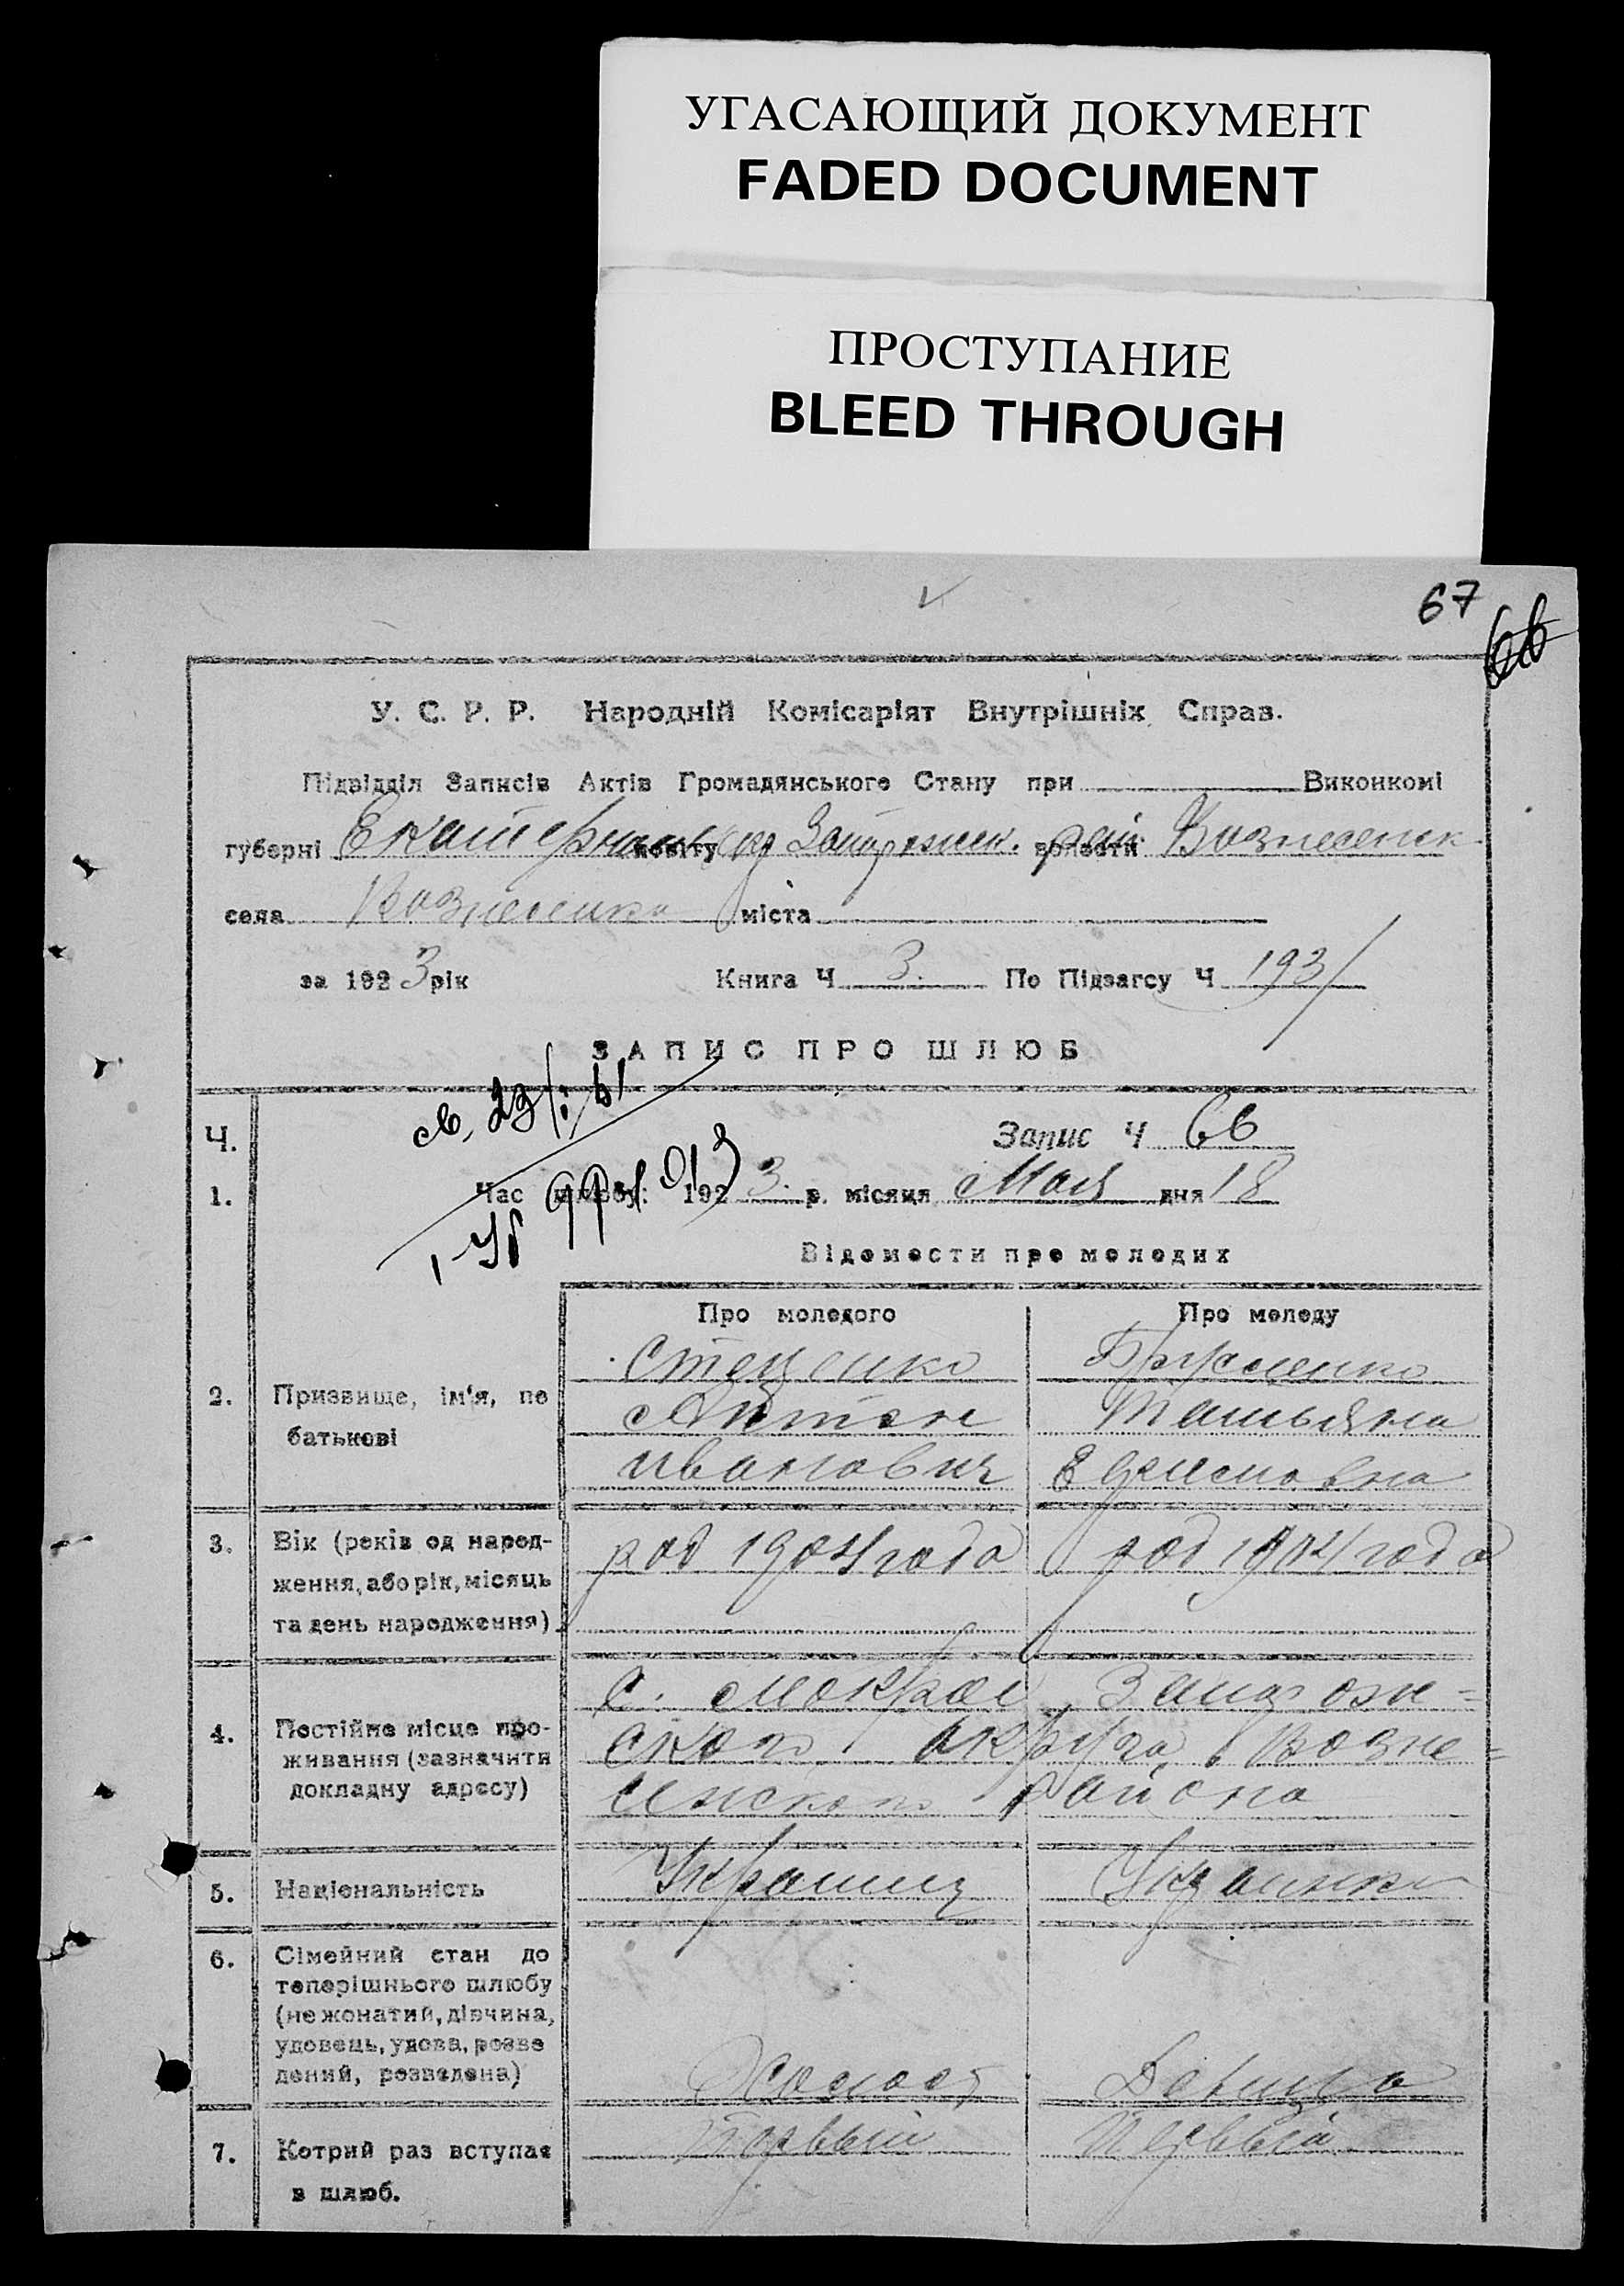 УГАСАЮЩИЙ ДОКУМЕНТ
FADED DOCUMENT
ПРОСТУПАНИЕ
BLEED THROUGH
67
66
У. С. Р. Р. Народній Комісаріят Внутрішніх Справ.
Підвідділ Записів Актів Громадянського Стану при Виконкомі
губерні Екатеринос повіту окр Запорожск. волости рай. Вознесенск.
села Вознесенка міста
за 1923 рік Книга Ч 3. По Підзагсу Ч 193/
ЗАПИС ПРО ШЛЮБ
Ч. Запис Ч 66
1. Час шлюбу: 1923. р. місяця Мая дня 18
Відомости про молодих
Про молодого Про молоду
2. Призвище, ім'я, по батькові
Стеценко
Антон
Иванович
Татьяна
3. Вік (років од народ-
ження, або рік, місяць
та день народження)
род 1904 года род 1904 года
4. Постійне місце про-
живання (зазначити
докладну адресу)
С. Мокрой Запорож=
ского округа, Возне=
сенского района
5. Національність Украинец Украинка
6. Сімейний стан до
теперішнього шлюбу
(не жонатий, дівчина,
удовець, удова, розве
дений, розведена)
Холост Девица
7. Котрий раз вступає
в шлюб.
Первый Первый